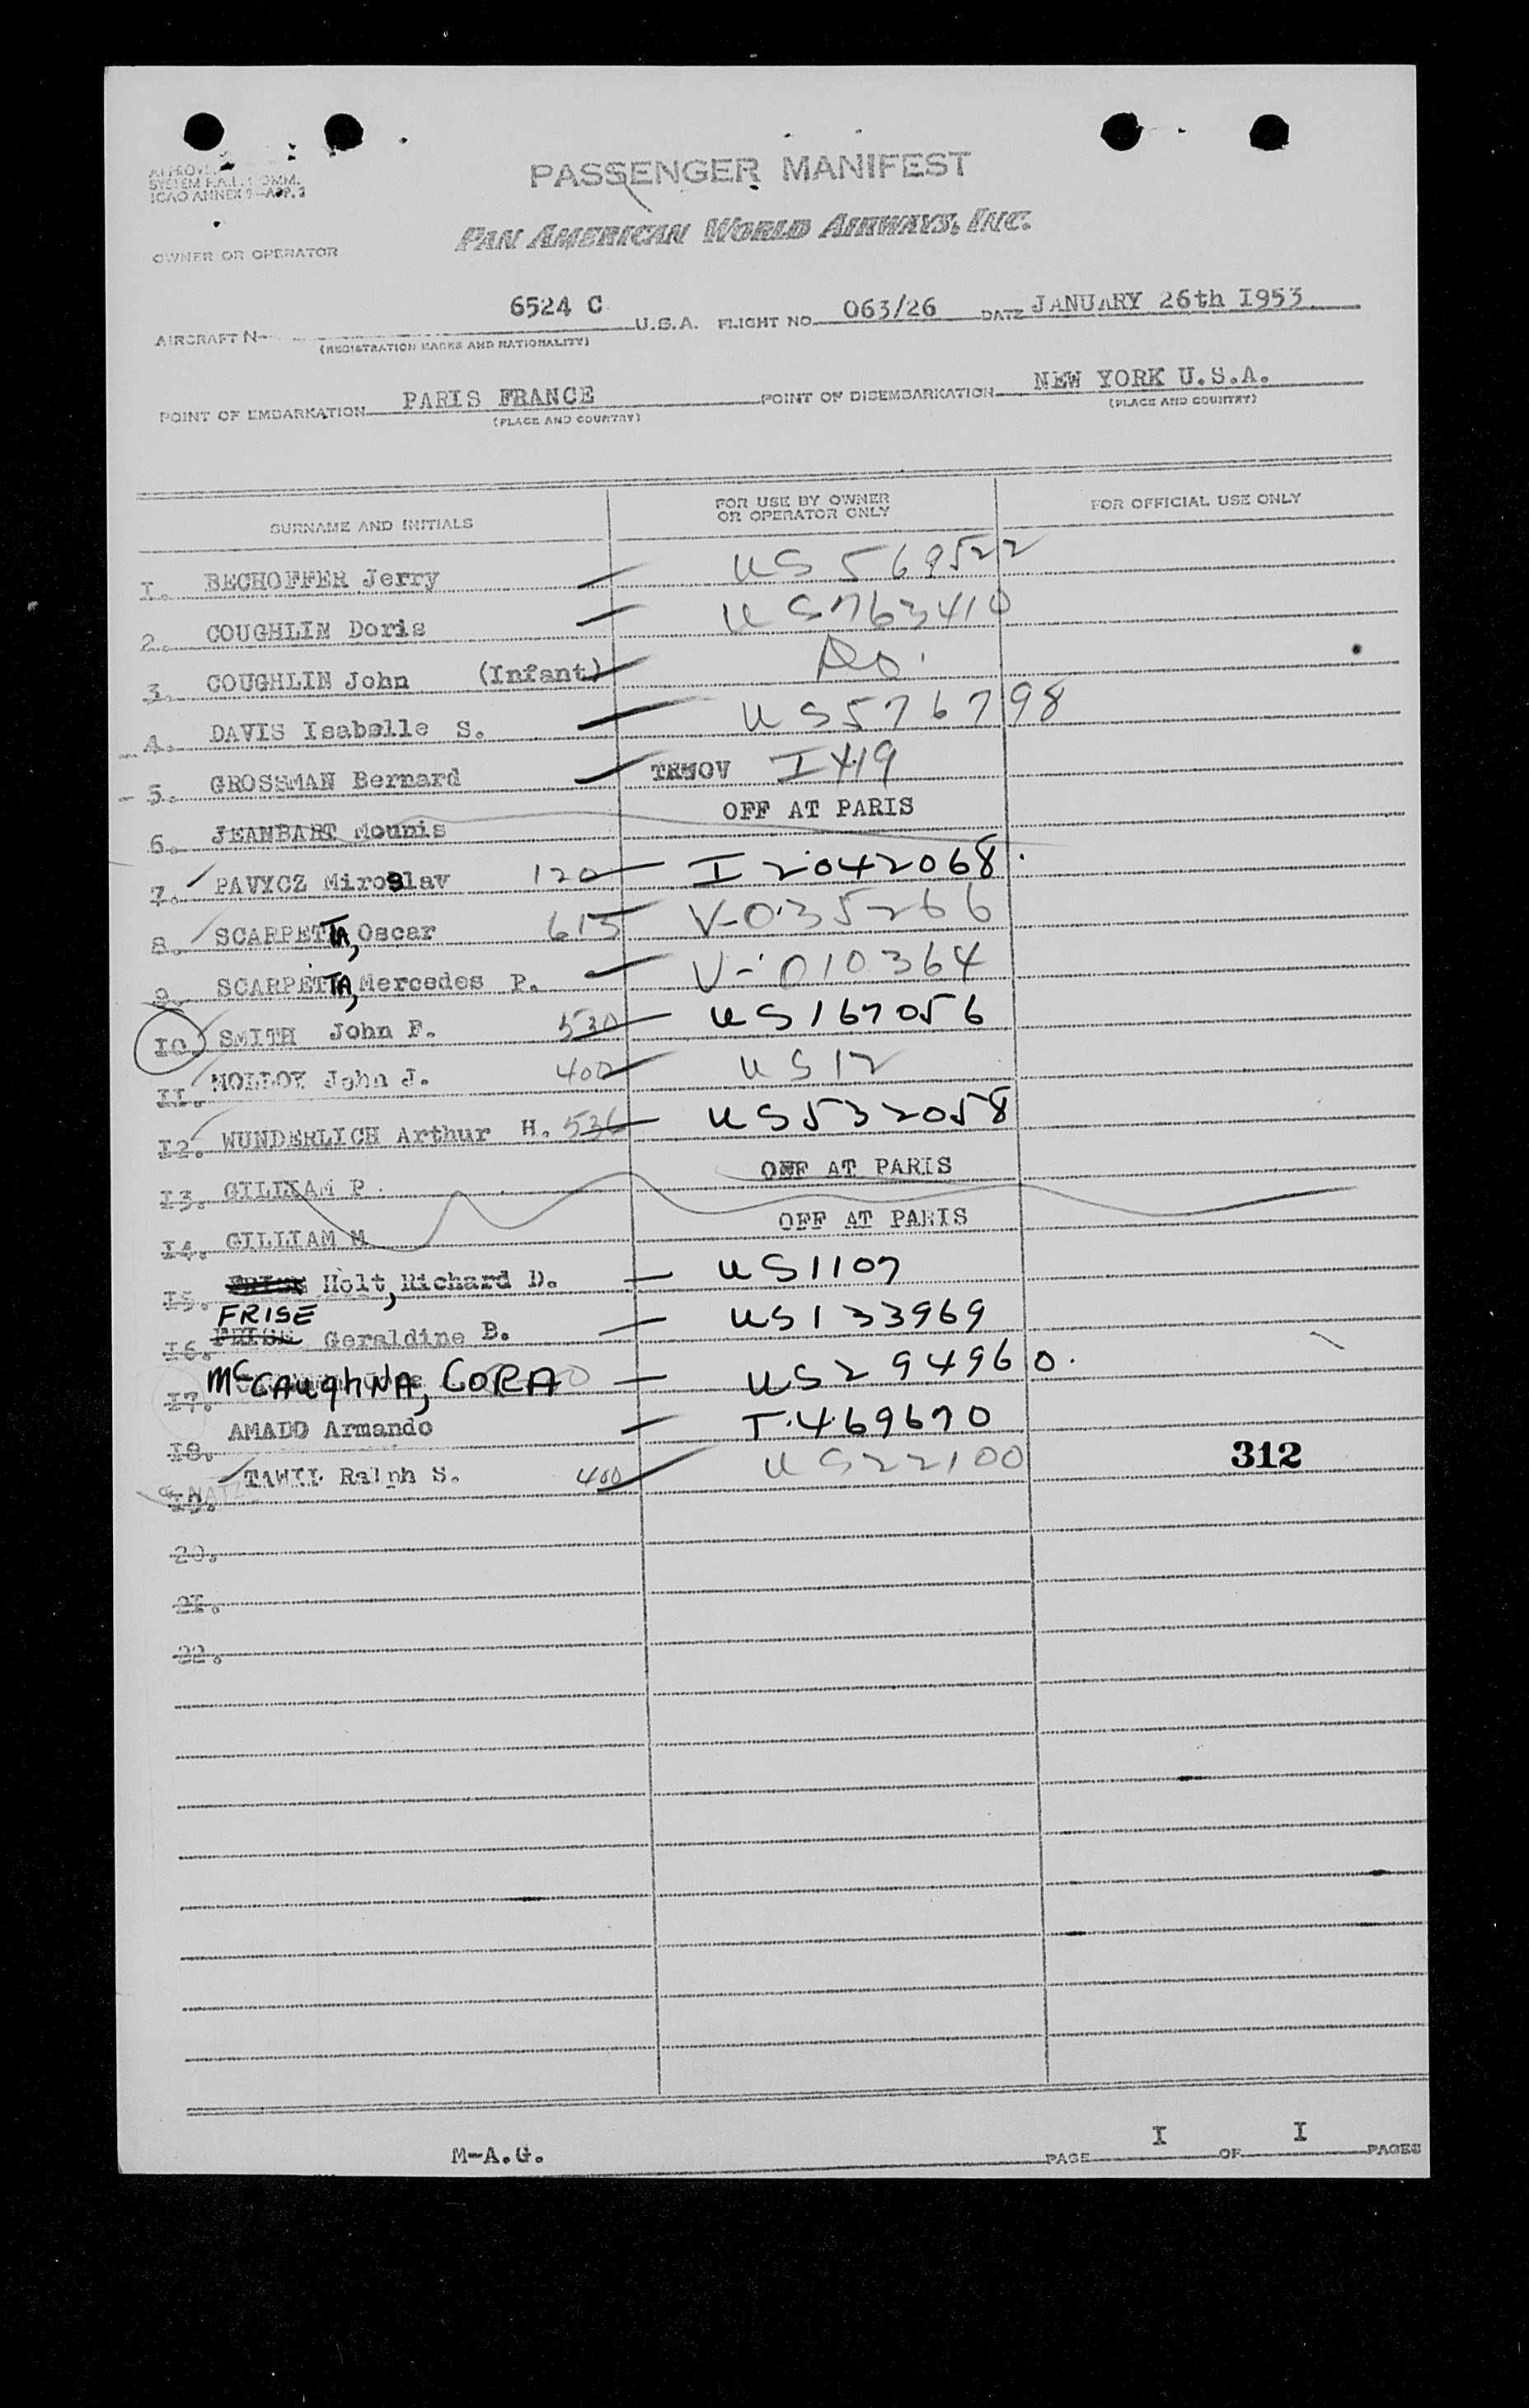 PASSENGER MANIFEST
SYSTEM F.A.L. COMM.
ICAO ANNEX 9-APP. 3
PAN AMERICAN WORLD AIRWAYS, INC.
OWNER OR OPERATOR
AIRCRAFT N 6524 C U.S.A. FLIGHT NO. 063/26 DATE JANUARY 26th I953
(REGISTRATION MARKS AND NATIONALITY)
POINT OF EMBARKATION PARIS FRANCE POINT OF DISEMBARKATION NEW YORK U.S.A.
(PLACE AND COUNTRY) (PLACE AND COUNTRY)
SURNAME AND INITIALS FOR USE BY OWNER OR OPERATOR ONLY FOR OFFICIAL USE ONLY
I. BECHOFFER Jerry — US 569522
2. COUGHLIN Doris — US763410
3. COUGHLIN John (Infant) — Do.
4. DAVIS Isabelle S. — US576798
5. GROSSMAN Bernard — I 419
6. JEANBART Mounis OFF AT PARIS
7. PAVYCZ Miroslav 120 — I 2042068
8. SCARPETTA, Oscar 615 V-035266
9. SCARPETTA, Mercedes P. — V-010364
I0. SMITH John F. 530 — US167056
II. MOLLOY John J. 400 US12
I2. WUNDERLICH Arthur H. 536 — US532058
I3. GILLIAM P. OFF AT PARIS
I4. GILLIAM M OFF AT PARIS
I5. Holt, Richard D. — US1107
FRISE
I6. Geraldine B. — US133969
I7. McCAughNA, CORA — US294960.
I8. AMADO Armando — T.469670
I9. TAWIL Ralph S. 400 US22100
312
20.
2I.
22.
M-A.G.
PAGE I OF I PAGES